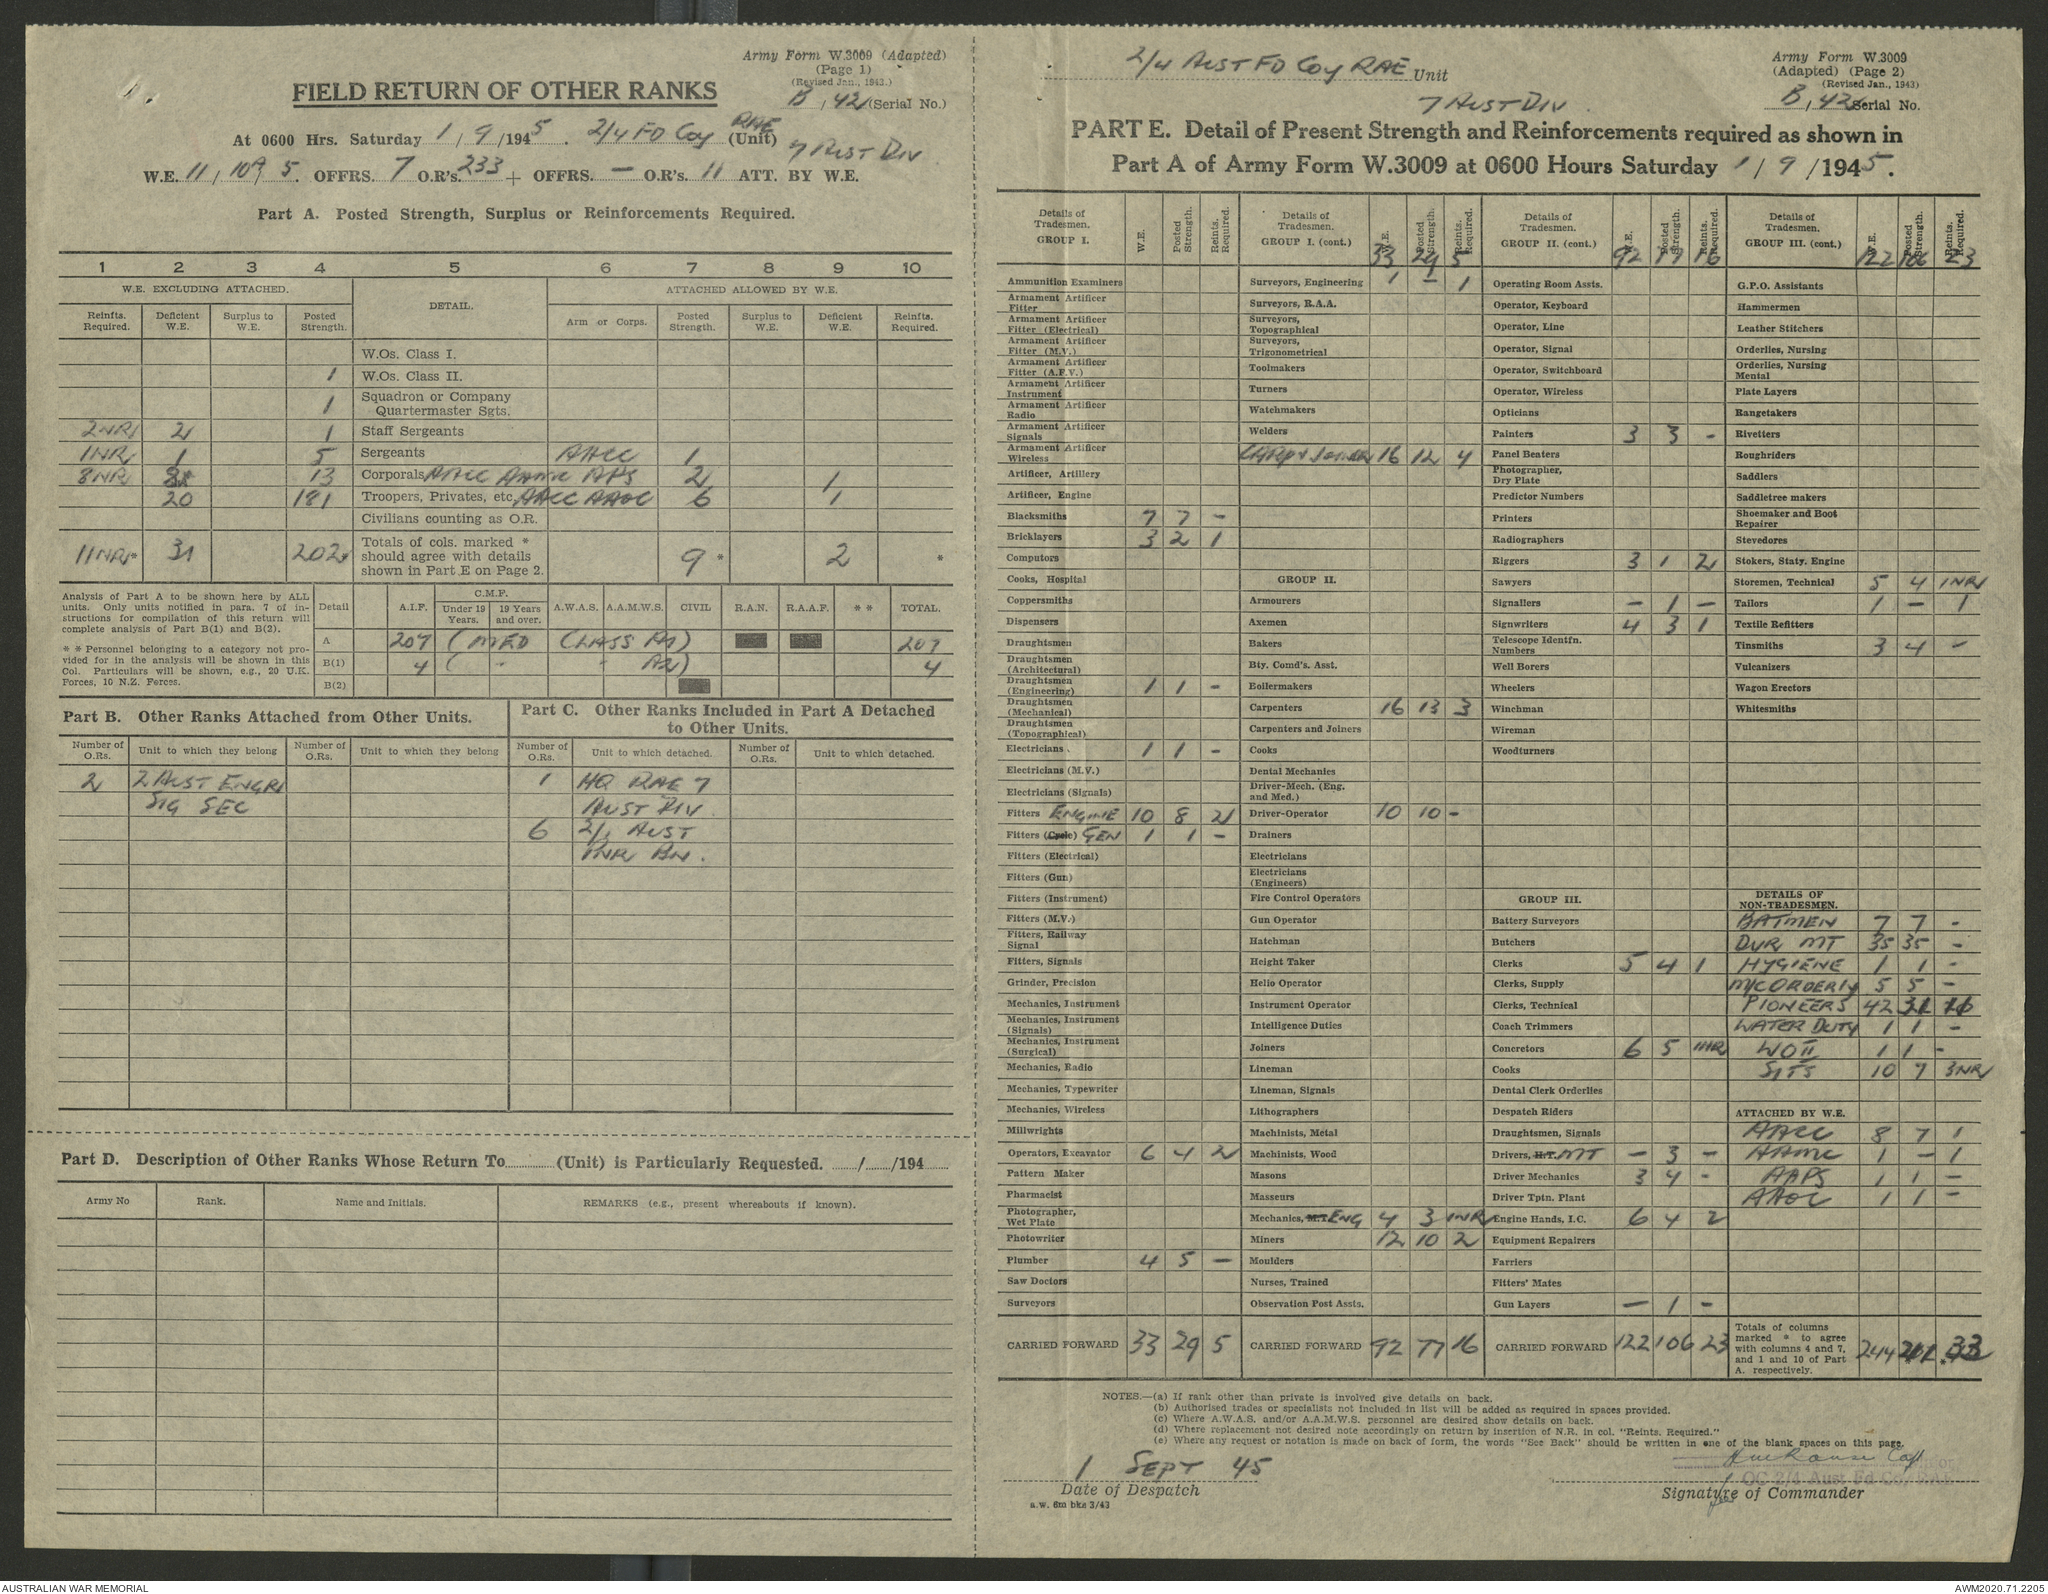 Army Form W.3009 (Adapted)
(Page 1)
(Revised Jan., 1943.)
FIELD RETURN OF OTHER RANKS
B, 42 (Serial No.)
At 0600 Hrs. Saturday 1/9/1945. 2/4 FD Coy RAE (Unit)
7 AUST DIV
W.E. 11/109/5. OFFRS. 7 O.R's. 233 + OFFRS. — O.R's. 11 ATT. BY W.E.
Part A. Posted Strength, Surplus or Reinforcements Required.
1 2 3 4 5 6 7 8 9 10
W.E. EXCLUDING ATTACHED. DETAIL. ATTACHED ALLOWED BY W.E.
Reinfts. Required. Deficient W.E. Surplus to W.E. Posted Strength. Arm or Corps. Posted Strength. Surplus to W.E. Deficient W.E. Reinfts. Required.
W.Os. Class I.
1 W.Os. Class II.
1 Squadron or Company Quartermaster Sgts.
2NR 2 1 Staff Sergeants
1NR 1 5 Sergeants AACC 1
8NR 8 13 Corporals AACC AAMC APS 2 1
20 181 Troopers, Privates, etc. AACC AAOC 6 1
Civilians counting as O.R.
11NR* 31 202* Totals of cols. marked * should agree with details shown in Part E on Page 2. 9* 2 *
Analysis of Part A to be shown here by ALL units. Only units notified in para. 7 of instructions for compilation of this return will complete analysis of Part B(1) and B(2).
* * Personnel belonging to a category not provided for in the analysis will be shown in this Col. Particulars will be shown, e.g., 20 U.K. Forces, 10 N.Z. Forces.
Detail A.I.F. C.M.F. Under 19 Years. 19 Years and over. A.W.A.S. A.A.M.W.S. CIVIL R.A.N. R.A.A.F. * * TOTAL.
A 207 (MED CLASS A1) 207
B(1) 4 ( " " A2) 4
B(2)
Part B. Other Ranks Attached from Other Units.
Part C. Other Ranks Included in Part A Detached to Other Units.
Number of O.Rs. Unit to which they belong Number of O.Rs. Unit to which they belong Number of O.Rs. Unit to which detached. Number of O.Rs. Unit to which detached.
2 2 AUST ENGR 1 HQ RAE 7
SIG SEC AUST DIV
6 2/1 AUST
PNR BN.
Part D. Description of Other Ranks Whose Return To (Unit) is Particularly Requested. / /194
Army No Rank. Name and Initials. REMARKS (e.g., present whereabouts if known).
2/4 AUST FD Coy RAE Unit
7 AUST DIV
Army Form W.3009
(Adapted) (Page 2)
(Revised Jan., 1943)
B, 42 Serial No.
PART E. Detail of Present Strength and Reinforcements required as shown in
Part A of Army Form W.3009 at 0600 Hours Saturday 1/9/1945.
Details of Tradesmen. GROUP I. W.E. Posted Strength. Reints. Required.
Ammunition Examiners
Armament Artificer Fitter
Armament Artificer Fitter (Electrical)
Armament Artificer Fitter (M.V.)
Armament Artificer Fitter (A.F.V.)
Armament Artificer Instrument
Armament Artificer Radio
Armament Artificer Signals
Armament Artificer Wireless
Artificer, Artillery
Artificer, Engine
Blacksmiths 7 7 -
Bricklayers 3 2 1
Computors
Cooks, Hospital
Coppersmiths
Dispensers
Draughtsmen
Draughtsmen (Architectural)
Draughtsmen (Engineering) 1 1 -
Draughtsmen (Mechanical)
Draughtsmen (Topographical)
Electricians 1 1 -
Electricians (M.V.)
Electricians (Signals)
Fitters ENGINE 10 8 2
Fitters (Cycle) GEN 1 1 -
Fitters (Electrical)
Fitters (Gun)
Fitters (Instrument)
Fitters (M.V.)
Fitters, Railway Signal
Fitters, Signals
Grinder, Precision
Mechanics, Instrument
Mechanics, Instrument (Signals)
Mechanics, Instrument (Surgical)
Mechanics, Radio
Mechanics, Typewriter
Mechanics, Wireless
Millwrights
Operators, Excavator 6 4 2
Pattern Maker
Pharmacist
Photographer, Wet Plate
Photowriter
Plumber 4 5 —
Saw Doctors
Surveyors
CARRIED FORWARD 33 29 5
Details of Tradesmen. GROUP I. (cont.) W.E. Posted Strength. Reints. Required.
33 29 5
Surveyors, Engineering 1 - 1
Surveyors, R.A.A.
Surveyors, Topographical
Surveyors, Trigonometrical
Toolmakers
Turners
Watchmakers
Welders
CARP & JOINER 16 12 4
GROUP II.
Armourers
Axemen
Bakers
Bty. Comd's. Asst.
Boilermakers
Carpenters 16 13 3
Carpenters and Joiners
Cooks
Dental Mechanics
Driver-Mech. (Eng. and Med.)
Driver-Operator 10 10 -
Drainers
Electricians
Electricians (Engineers)
Fire Control Operators
Gun Operator
Hatchman
Height Taker
Helio Operator
Instrument Operator
Intelligence Duties
Joiners
Lineman
Lineman, Signals
Lithographers
Machinists, Metal
Machinists, Wood
Masons
Masseurs
Mechanics, M.T. ENG 4 3 1NR
Miners 12 10 2
Moulders
Nurses, Trained
Observation Post Assts.
CARRIED FORWARD 92 77 16
Details of Tradesmen. GROUP II. (cont.) W.E. Posted Strength. Reints. Required.
92 77 16
Operating Room Assts.
Operator, Keyboard
Operator, Line
Operator, Signal
Operator, Switchboard
Operator, Wireless
Opticians
Painters 3 3 -
Panel Beaters
Photographer, Dry Plate
Predictor Numbers
Printers
Radiographers
Riggers 3 1 2
Sawyers
Signallers - 1 -
Signwriters 4 3 1
Telescope Identfn. Numbers
Well Borers
Wheelers
Winchman
Wireman
Woodturners
GROUP III.
Battery Surveyors
Butchers
Clerks 5 4 1
Clerks, Supply
Clerks, Technical
Coach Trimmers
Concretors 6 5 1NR
Cooks
Dental Clerk Orderlies
Despatch Riders
Draughtsmen, Signals
Drivers, H.T. MT - 3 -
Driver Mechanics 3 4 -
Driver Tptn. Plant
Engine Hands, I.C. 6 4 2
Equipment Repairers
Farriers
Fitters' Mates
Gun Layers — 1 -
CARRIED FORWARD 122 106 23
Details of Tradesmen. GROUP III. (cont.) W.E. Posted Strength. Reints. Required.
122 106 23
G.P.O. Assistants
Hammermen
Leather Stitchers
Orderlies, Nursing
Orderlies, Nursing Mental
Plate Layers
Rangetakers
Rivetters
Roughriders
Saddlers
Saddletree makers
Shoemaker and Boot Repairer
Stevedores
Stokers, Staty. Engine
Storemen, Technical 5 4 1NR
Tailors 1 - 1
Textile Refitters
Tinsmiths 3 4 -
Vulcanizers
Wagon Erectors
Whitesmiths
DETAILS OF NON-TRADESMEN.
BATMEN 7 7 -
DVR MT 35 35 -
HYGIENE 1 1 -
M/C ORDERLY 5 5 -
PIONEERS 42
WATER DUTY 1 1 -
WO II 1 1 -
SJTS 10 7 3NR
ATTACHED BY W.E.
AACC 8 7 1
AAMC 1 - 1
AAPS 1 1 -
AAOC 1 1 -
Totals of columns marked * to agree with columns 4 and 7, and 1 and 10 of Part A. respectively. 244 211 33
NOTES.—(a) If rank other than private is involved give details on back.
(b) Authorised trades or specialists not included in list will be added as required in spaces provided.
(c) Where A.W.A.S. and/or A.A.M.W.S. personnel are desired show details on back.
(d) Where replacement not desired note accordingly on return by insertion of N.R. in col. "Reints. Required."
(e) Where any request or notation is made on back of form, the words "See Back" should be written in one of the blank spaces on this page.
1 SEPT 45
Date of Despatch
a.w. 6m bks 3/43
Capt
OC 2/4 Aust Fd Coy RAE
Signature of Commander
AUSTRALIAN WAR MEMORIAL
AWM2020.71.2205